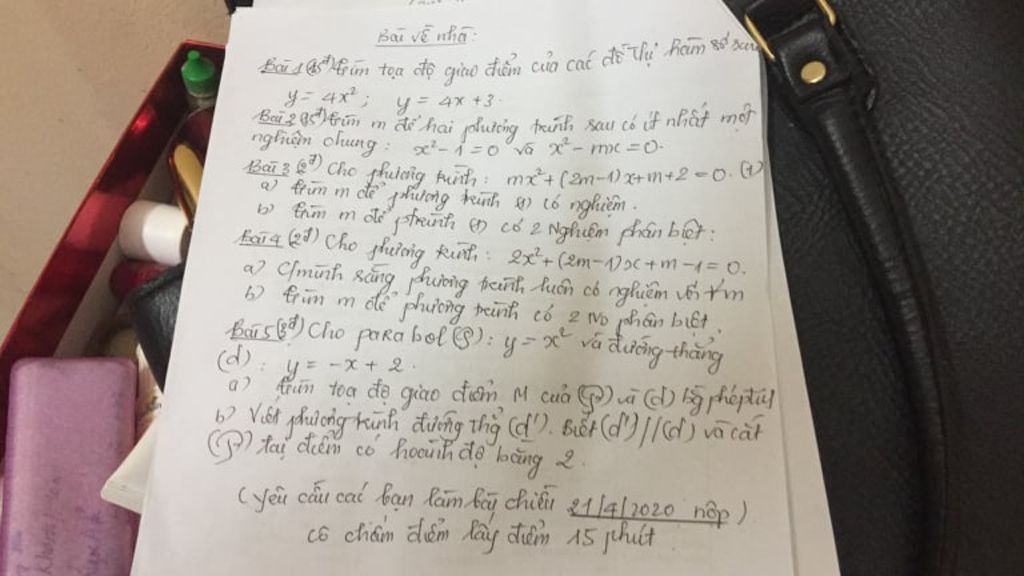 Bài về nhà:
Bài 1 (1,5đ) tìm tọa độ giao điểm của các đồ thị hàm số sau
y = 4x²; y = 4x + 3.
Bài 2 (1,5đ) tìm m để hai phương trình sau có ít nhất một
nghiệm chung: x² - 1 = 0 và x² - mx = 0.
Bài 3 (2đ) Cho phương trình: mx² + (2m-1)x + m + 2 = 0. (1)
a) tìm m để phương trình (1) có nghiệm.
b) tìm m để ptrình (1) có 2 Nghiệm phân biệt:
Bài 4 (2đ) Cho phương trình: 2x² + (2m-1)x + m - 1 = 0.
a) C/minh rằng phương trình luôn có nghiệm với ∀m
b) tìm m để phương trình có 2 No phân biệt.
Bài 5 (3đ) Cho parabol (P): y = x² và đường thẳng
(d): y = -x + 2.
a) tìm tọa độ giao điểm M của (P) và (d) bằng phép tính
b) Viết phương trình đường thg (d'). Biết (d') // (d) và cắt
(P) tại điểm có hoành độ bằng 2.
(yêu cầu các bạn làm bày chiều 21/4/2020 nộp)
cô chấm điểm lấy điểm 15 phút